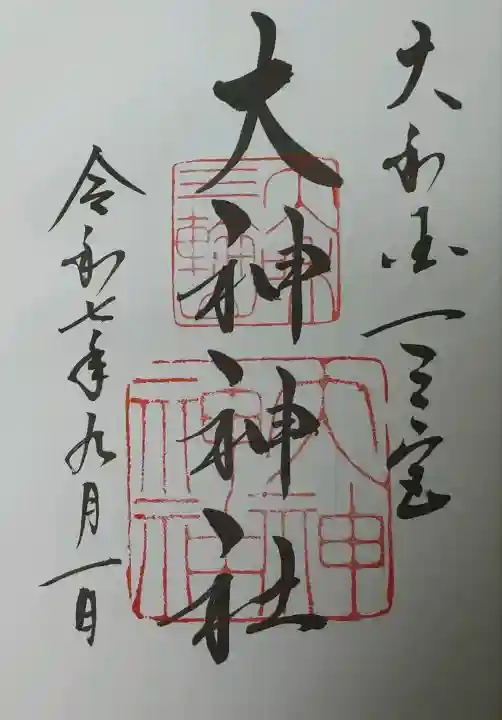 大和国一之宮
大神神社
令和七年九月一日
三輪
大神神社